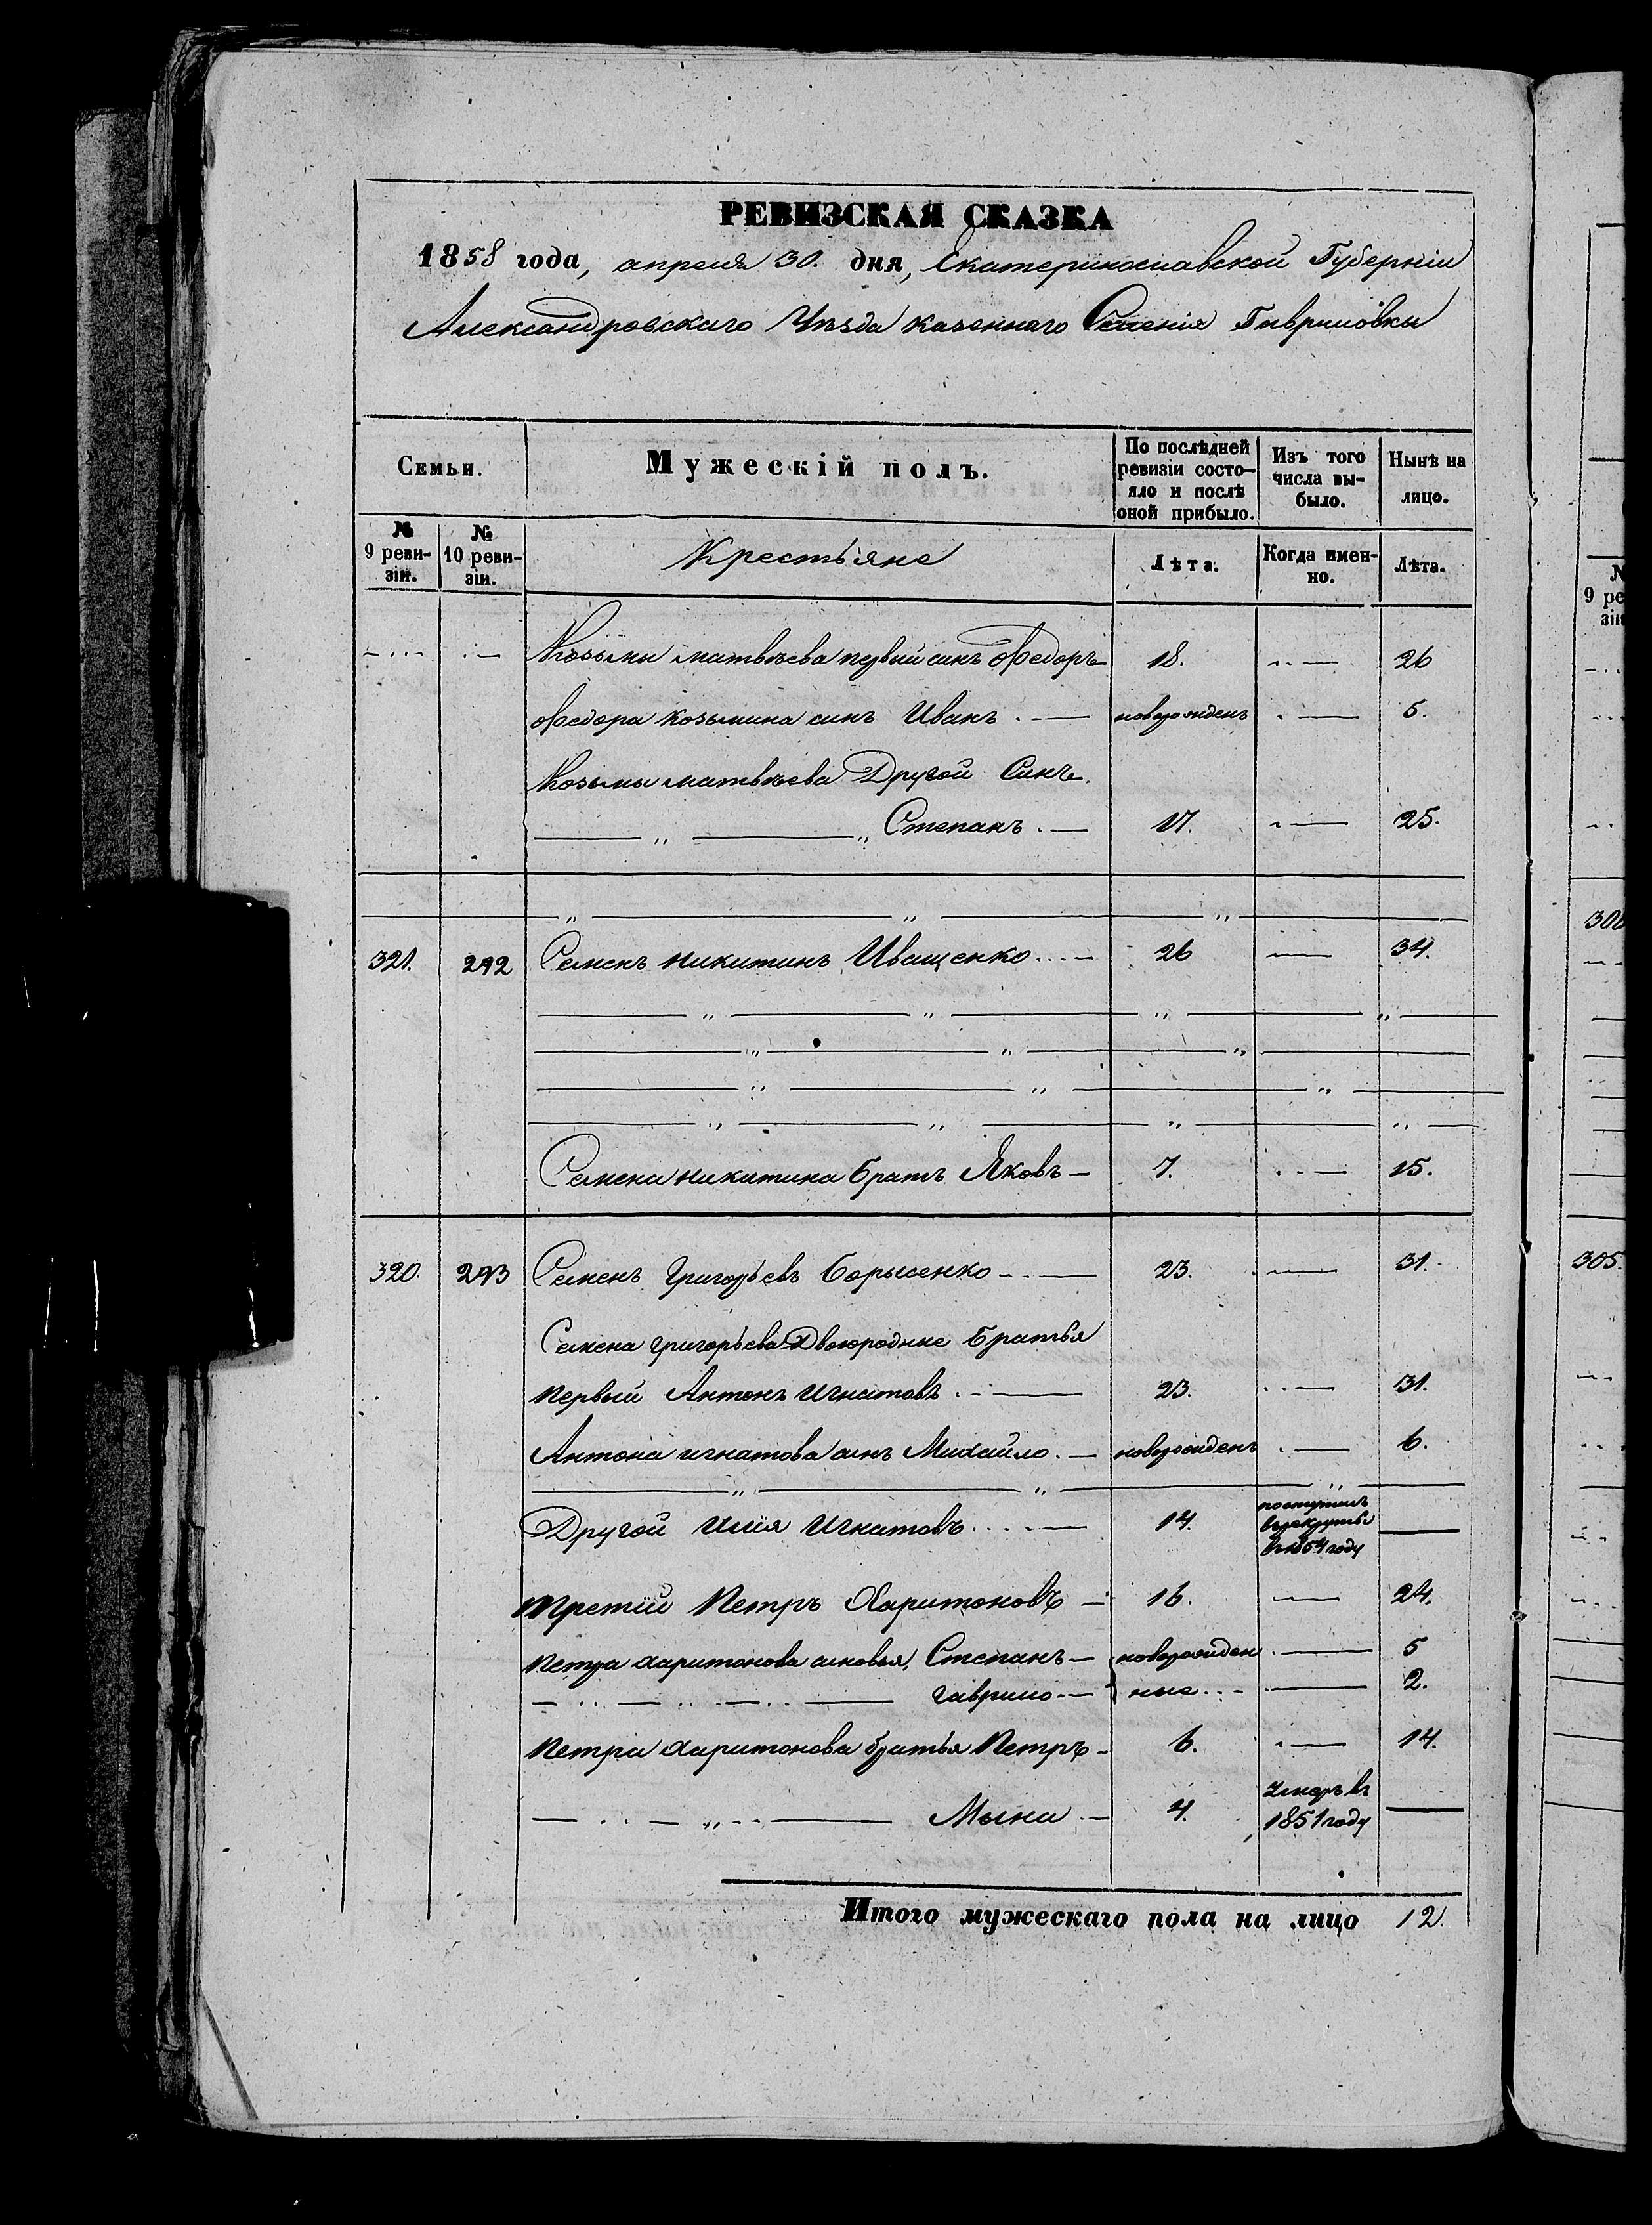 РЕВИЗСКАЯ СКАЗКА
1858 года, апреля 30. дня, Екатеринославской Губерніи
Александровскаго Уѣзда казеннаго Селенія Гавриловки
Семьи.
Мужескій полъ.
По послѣдней ревизіи состо-яло и послѣ оной прибыло.
Изъ того числа вы-было.
Нынѣ на лицо.
№ 9 реви-зіи.
№ 10 реви-зіи.
Крестьяне
Лѣта.
Когда имен-но.
Лѣта.
Козьмы матвѣева первый синъ Федоръ 18. 26
Федора козьмина синъ Иванъ новорожденъ 5.
Козьмы матвѣева Другой Синъ
Степанъ 17. 25.
321. 292 Семенъ никитинъ Иващенко 26 34.
Семена никитина братъ Яковъ 7. 15.
320. 293 Семенъ григорьевъ Борысенко 23. 31.
Семена григорьева Двоюродные братья
первый Антонъ игнатовъ 23. 31.
Антона игнатова синъ Михайло новорожденъ 6.
Другой Илія Игнатовъ 14. поступилъ
в рекруты
в 1854 году
третій Петръ Харитоновъ 16. 24.
Петра харитонова сыновья, Степанъ новорожден 5
гаврило ные 2.
Петра харитонова братья Петръ 6. 14.
Мына 4. Умеръ в
1851 году
Итого мужескаго пола на лицо 12.
9 ре
зіи
305.